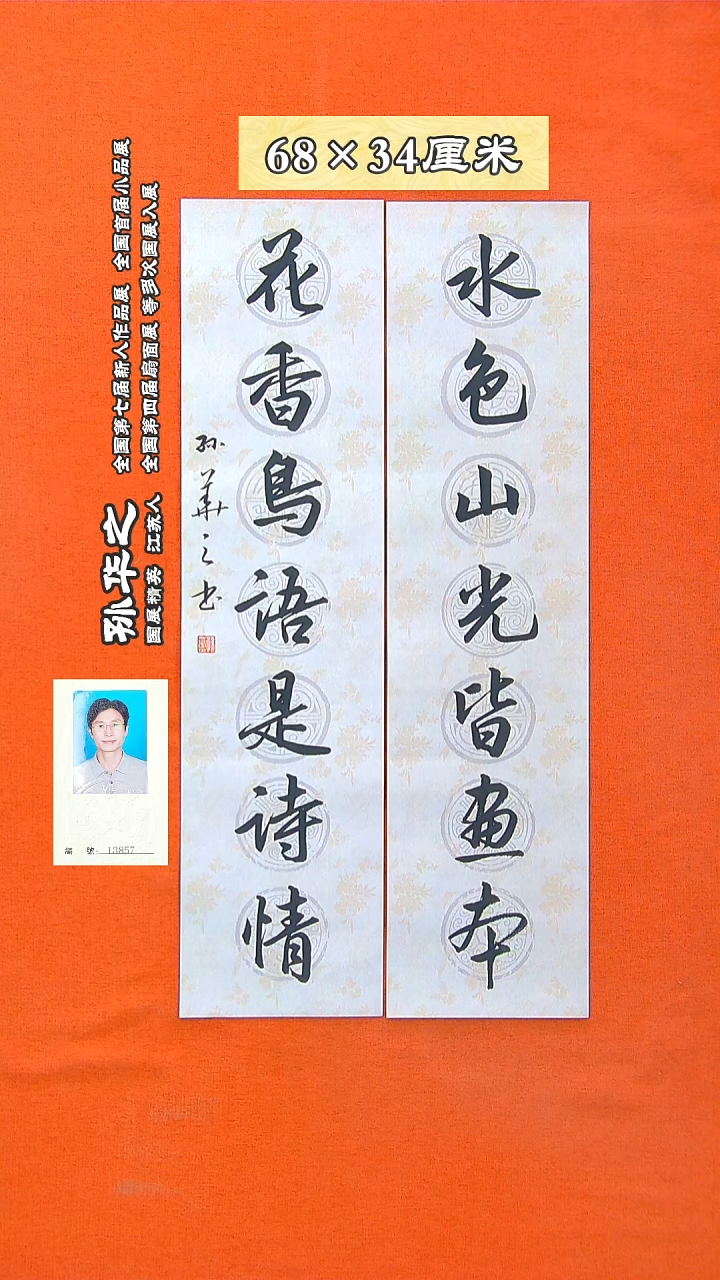 68×34厘米
水色山光皆画本
花香鳥语是诗情
孙華之书
孙华之
国展精英 江苏人
全国第七届新人作品展 全国首届小品展
全国第四届扇面展 等多次国展入展
編 號: 13857